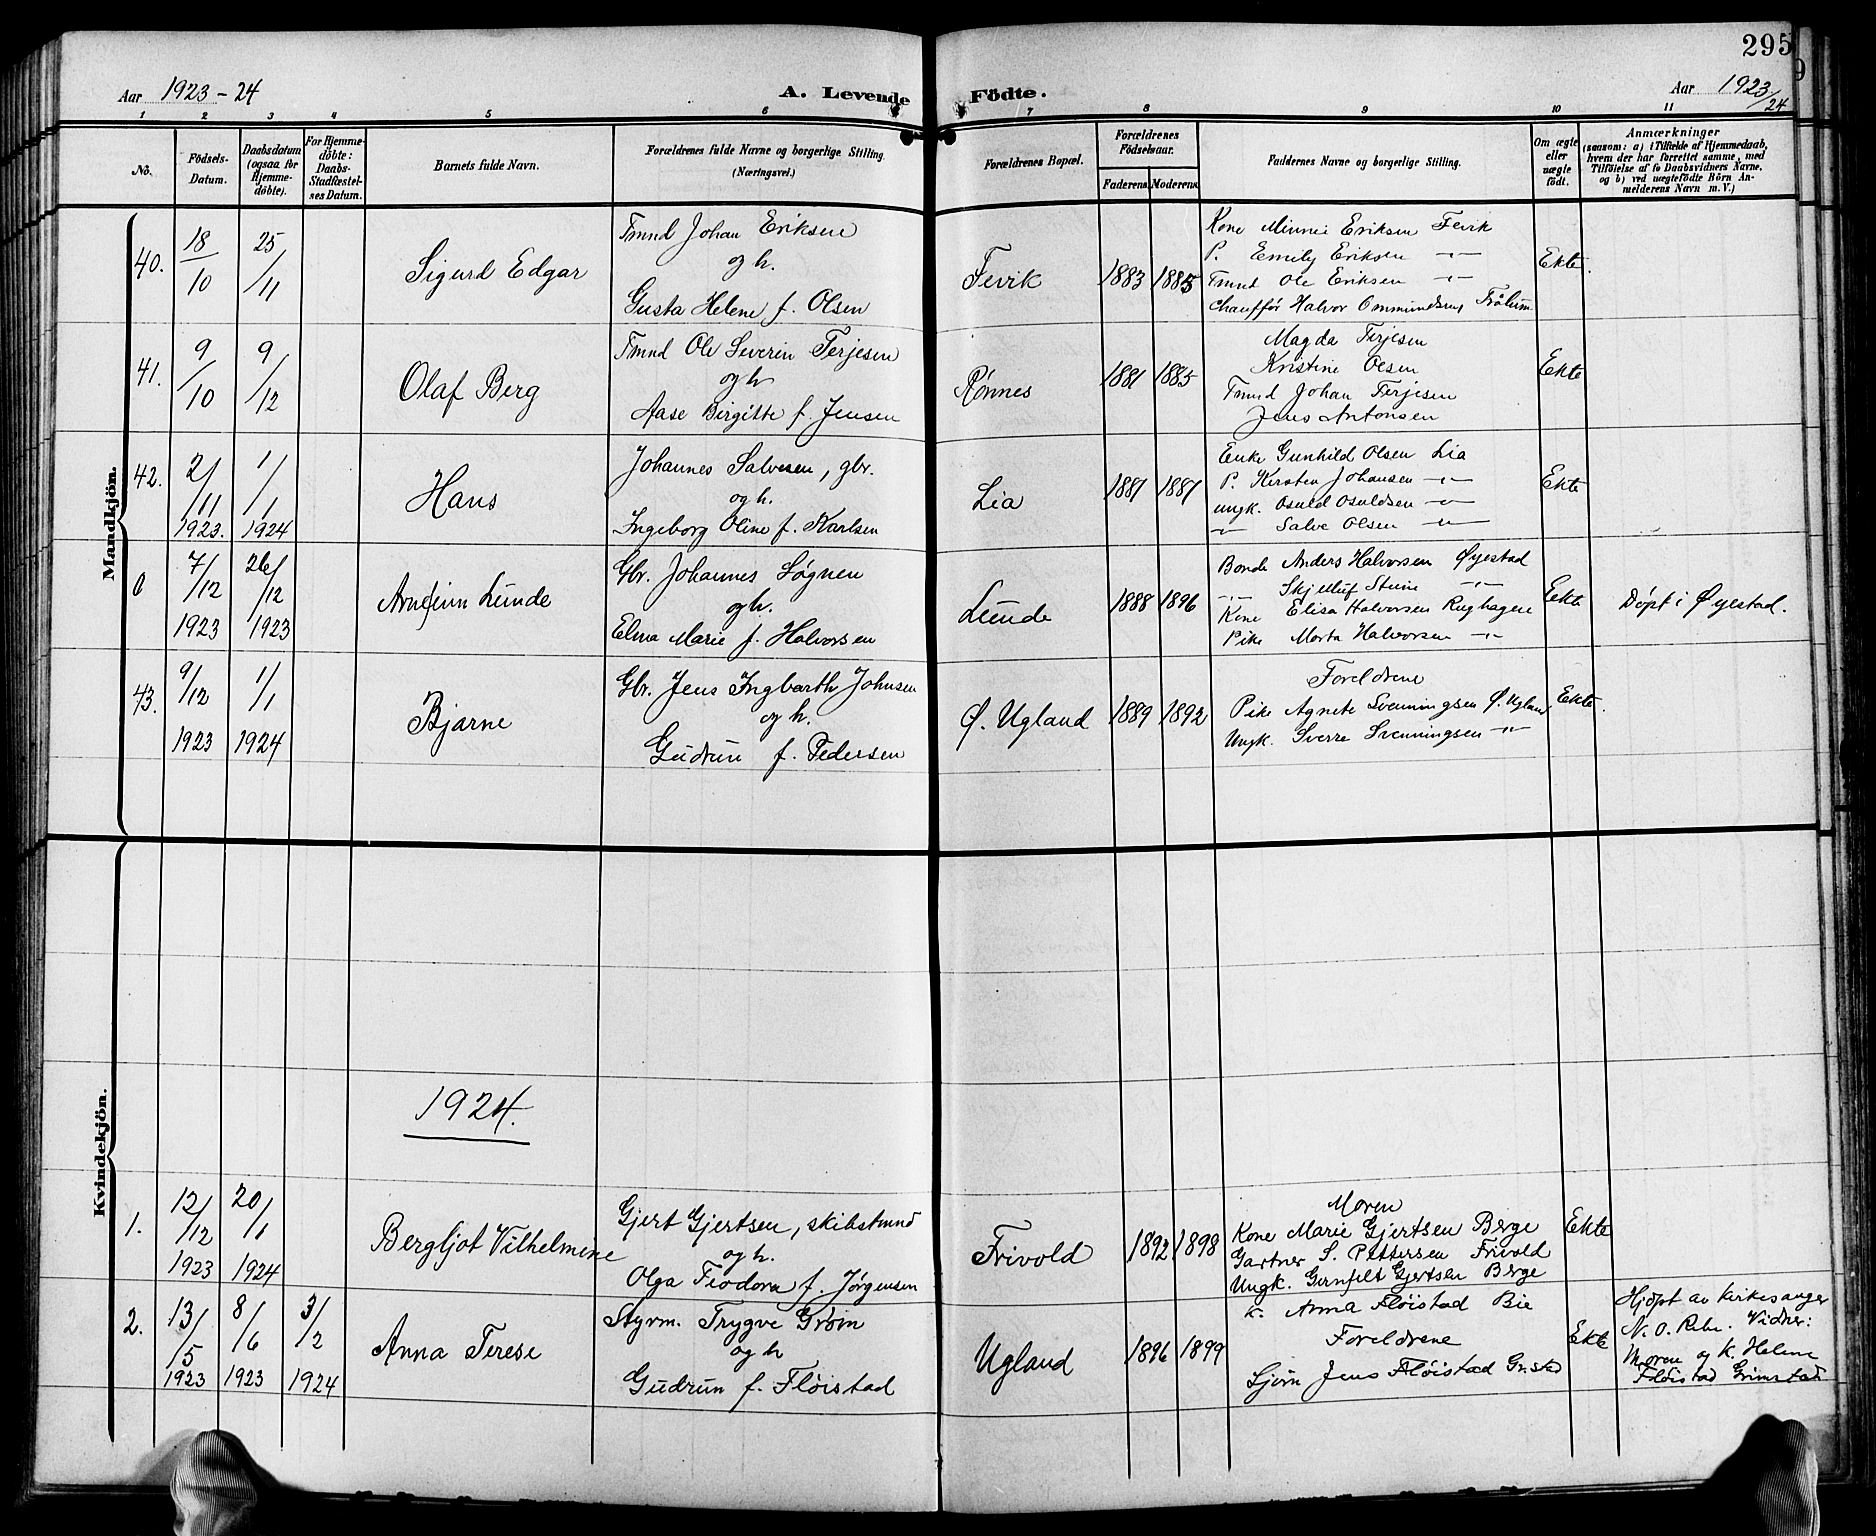 295
Aar 1923-24
A. Levende Födte.
Aar 1923/24
1 2 3 4 5 6 7 8 9 10 11
No.
Födsels-Datum.
Daabsdatum (ogsaa for Hjemme-döbte).
For Hjemme-döbte: Daabs-Stadfæstel-ses Datum.
Barnets fulde Navn.
Forældrenes fulde Navne og borgerlige Stilling. (Næringsvei.)
Forældrenes Bopæl.
Forældrenes Födselsaar.
Faderens. Moderens.
Faddernes Navne og borgerlige Stilling.
Om ægte eller uægte födt.
Anmærkninger
(saasom: a) i Tilfælde af Hjemmedaab, hvem der har forrettet samme, med Tilföielse af to Daabsvidners Navne, og b) ved uægtefödte Börn An-melderens Navn m. V.)
Mandkjön.
40.
18/10
25/11
Sigurd Edgar
Tmnd Johan Eriksen
og h.
Gusta Helene f. Olsen
Fevik
1883 1885
Kone Minnie Eriksen Fevik
P. Emily Eriksen -"-
Tmnd Ole Eriksen -"-
Chauffør Halvor Ommundsen,
Ekte.
41.
9/10
9/12
Olaf Berg
Tmnd Ole Severin Terjesen
og h
Aase Birgitte f. Jensen
Rønnes
1881 1885
Magda Terjesen
Kristine Olsen
Tmnd Johan Terjesen
Jens Antonsen
Ekte
42.
2/11
1923.
1/1
1924
Hans
Johannes Salvesen, gbr.
og h.
Ingeborg Oline f. Karlsen
Lia
1881 1881
Enke Gunhild Olsen Lia
P. Kirsten Johansen -"-
ungk. Osuld Osuldsen -"-
-"- Salve Olsen -"-
Ekte
0
7/12
1923
26/12
1923
Arnfinn Lunde
Gbr. Johannes Søgnen
og h.
Elma Marie f. Halvorsen
Lunde
1888 1896
Bonde Anders Halvorsen Øyestad
-"- Skjelluf -"-
Kone Elisa Halvorsen Rughagen
Pike Marta Halvorsen -"-
Ekte
Døpt i Øyestad.
43.
9/12
1923
1/1
1924
Bjarne
Gbr. Jens Ingbarth Johnsen
og h.
Gudrun f. Pedersen
Ø. Ugland
1889 1892
Foreldrene
Pike Agnete Svenningsen Ø. Ugland
Ungk. Sverre Svenningsen -"-
Ekte.
Kvindekjön.
1924.
1.
12/12
1923
20/1
1924
Bergljot Vilhelmine
Gjert Gjertsen, skibstmnd
og h.
Olga Teodora f. Jørgensen
Frivold
1892 1898
Moren
Kone Marie Gjertsen Berge
Gartner S. Pettersen Frivold
Ungk. Gjertsen Berge
Ekte
2.
13/5
1923
8/6
1923
3/2
1924
Anna Terese
Styrm. Trygve Grøin
og h
Gudrun f. Fløistad
Ugland
1896 1899
K. Anna Fløistad Bie
Foreldrene
Sjøm Jens Fløistad Gr.stad
Ekte
Hjdøpt av kirkesanger
N. O. Vidner:
Moren og K. Helene
Fløistad Grimstad